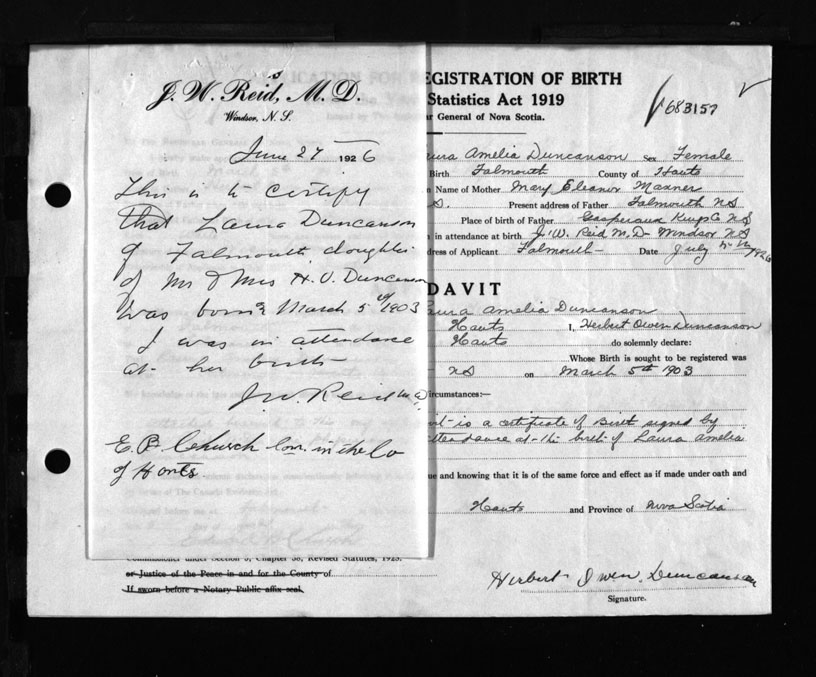 J. W. Reid, M. D.
Windsor, N. S.
June 27 1926
This is to certify
that Laura Duncanson
of Falmouth daughter
of Mr & Mrs H. O. Duncanson
was born March 5th 1903
I was in attendance
at her birth
J. W. Reid M D
E. B. Church Com. in the Co
of Hants.
EGISTRATION OF BIRTH
Statistics Act 1919
ar General of Nova Scotia.
683157
aura Amelia Duncanson Sex Female
Birth Falmouth County of Hants
n Name of Mother Mary Eleanor Manner
S. Present address of Father Falmouth NS
Place of birth of Father Gaspereaux Kings Co NS
n in attendance at birth J. W. Reid M. D- Windsor NS
dress of Applicant Falmouth- Date July 1926
DAVIT
aura Amelia Duncanson
Hants I, Herbert Owen Duncanson
Hants do solemnly declare:
Whose Birth is sought to be registered was
NS on March 5th 1903
ircumstances:—
is a certificate of Birth signed by
ttendance at the birth of Laura Amelia
ue and knowing that it is of the same force and effect as if made under oath and
Hants and Province of Nova Scotia
Commissioner under Section 5, Chapter 38, Revised Statutes, 1923.
or Justice of the Peace in and for the County of
If sworn before a Notary Public affix seal.
Herbert Owen Duncanson
Signature.